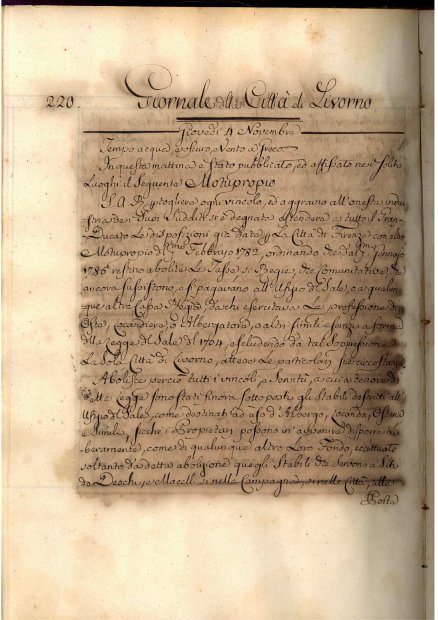 220.
Giornale della Città di Livorno
Giovedì 4 Novembre
Tempo acqua, e oscuro, e Vento a
In questa mattina è stato pubblicato, ed affissato ne soliti
Luoghi il seguente Motuproprio
S. A. R. togliere ogni vincolo, ed aggravio all'onesta indu
stria de suoi Sudditi si è degnata estendere a tutto il Gran-
Ducato Le disposizioni già date La Città di Firenze con altro
Motuproprio di Febbrajo 1782, ordinando che dal Gennajo
1785 restino abolite Le Tasse sì Regie, che Comunitative, che
ancora sussistono e si pagavano all'Ufizio del Sale, o a qualun
que altra Cassa Regia da chi esercitava La professione di
Oste, Locandiere, o Albergatore, o altri simili a forma
della Legge del Sale del 1704, escludendo da tal soppressione
La sola Città di Livorno, attese Le particolari sue circostanze
Abolisce perciò tutti i vincoli, e Servitù, a cui a tenore di
detta Legge sono stati finora sottoposti gli Stabili descritti all'
Ufizio del Sale, come destinati ad uso d'Albergo, Locanda, Osteria
e Simili, sicchè i Proprietari possono in avvenire disporne Li
beramente, come di qualunque altro Loro Fondo, eccettuato
soltanto da detta abolizione quegli Stabili che servono a
da Deschi, e Macelli sì nella Campagna, sì nelle Città, alle
Porte